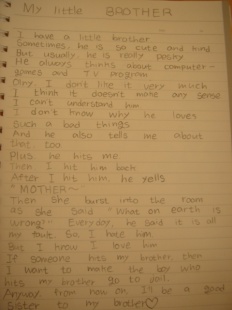 My little BROTHER
I have a little brother
Sometimes, he is so cute and kind
But usually he is really pushy
He always thinks about computer-
games and TV program
Olny I don't like it very much
I think it doesn't make any sense
I can't understand him
I don't know why he loves
Such a bad things
And he also tells me about
that too
Plus he hits me
Then I hit him back
After I hit him, he yells
"MOTHER~
Then she burst into the room
as she said "What on earth is
wrong?" Everyday, he said it is all
my fault So I hate him
But I know I love him
If someone hits my brother, then
I want to make the boy who
hits my brother go to jail.
Anyway from now on I'll be a good
sister to my brother♡